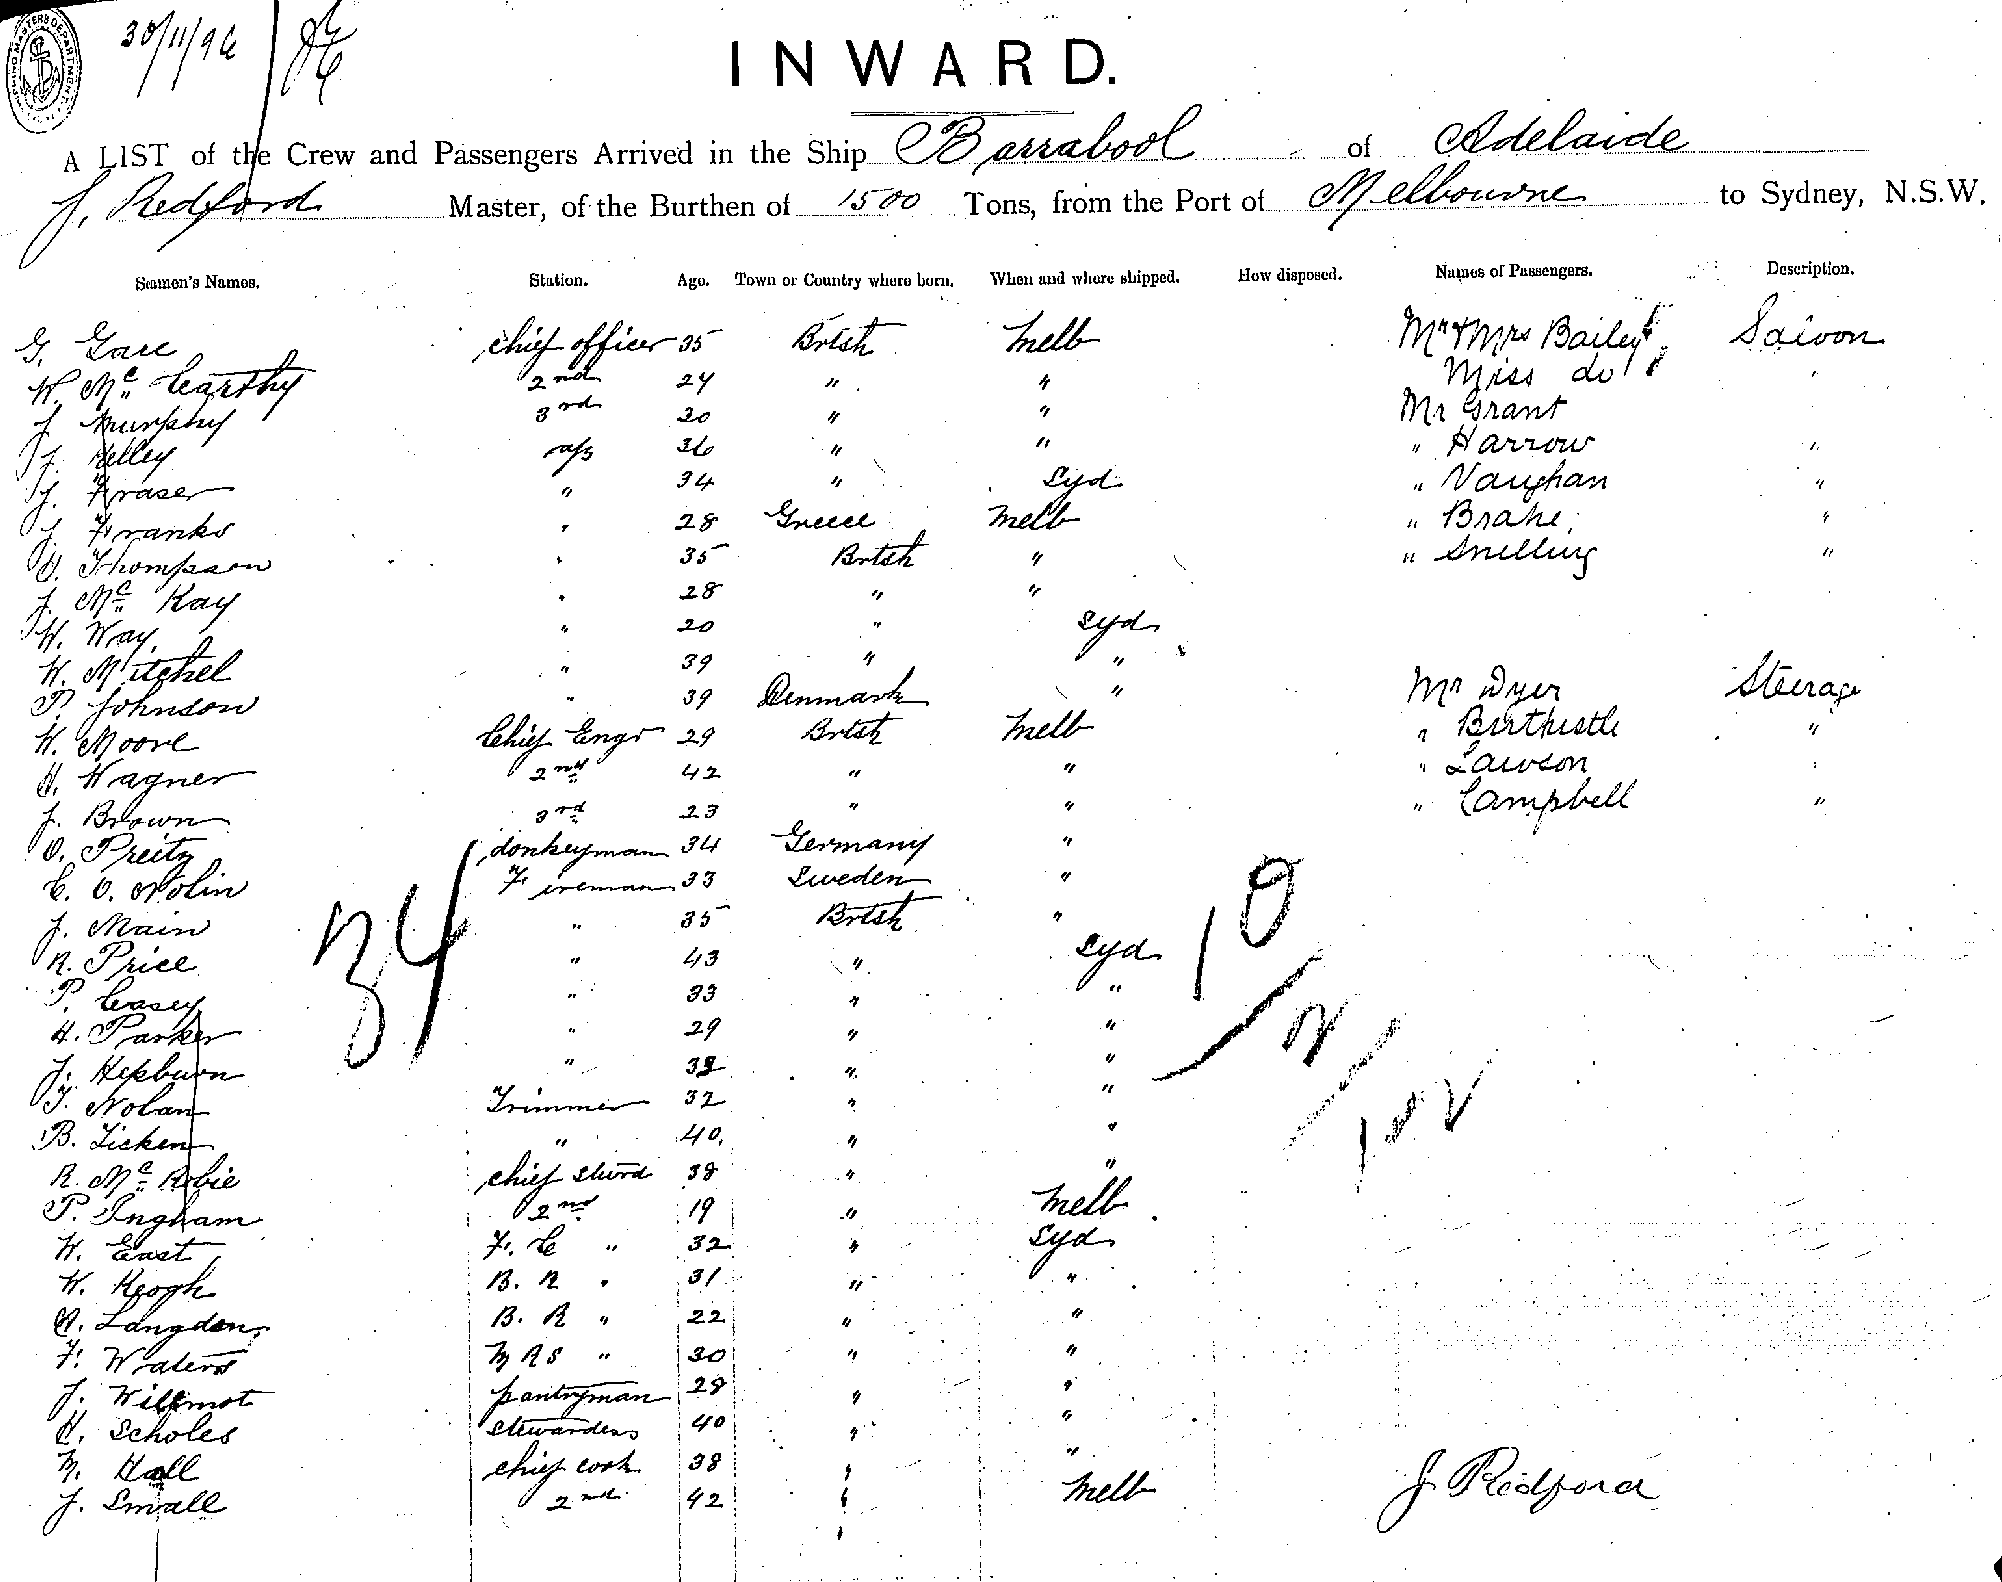 SHIPPING MASTERS DEPARTMENT
30/11/96
INWARD.
A LIST of the Crew and Passengers Arrived in the Ship Barrabool of Adelaide
J. Redford Master, of the Burthen of 1500 Tons, from the Port of Melbourne to Sydney, N.S.W.
Seamen's Names. Station. Age. Town or Country where born. When and where shipped. How disposed. Names of Passengers. Description.
G. Gare chief officer 35 Brtsh Melb Mr & Mrs Bailey Saloon
W. McCarthy 2nd 24 " " Miss do "
J. Murphy 3rd 20 " " Mr Grant
J. Kelley a/b 36 " " " Harrow "
J. Fraser " 34 " Syd " Vaughan "
J. Franks " 28 Greece Melb " Brahe "
O. Thompson " 35 Brtsh " " Snelling "
J. McKay " 28 " "
W. Way " 20 " Syd
W. Mitchel " 39 " "
P. Johnson " 39 Denmark " Mr Dyer Steerage
W. Moore Chief Engr 29 Brtsh Melb " Birthistle "
H. Wagner 2nd 42 " " " Lawson "
J. Brown 3rd 23 " " " Campbell "
O. Preitz donkeyman 34 Germany "
C. O. Nolin Fireman 33 Sweden "
J. Main " 35 Brtsh "
R. Price " 43 " Syd
P. Casey " 33 " "
H. Parker " 29 " "
J. Hepburn " 32 " "
T. Nolan Trimmer 32 " "
B. Licken " 40 " "
R. McRobie chief stwrd 38 " "
P. Ingham 2nd 19 " Melb
W. East F. C " 32 " Syd
W. Keogh B. R " 31 " "
R. Langden B. R " 22 " "
F. Waters M R S " 30 " "
J. Willmot pantryman 28 " "
H. Scholes stewardess 40 " "
M. Hall chief cook 38 " "
J. Small 2nd 42 " Melb
34
10
J. Redford